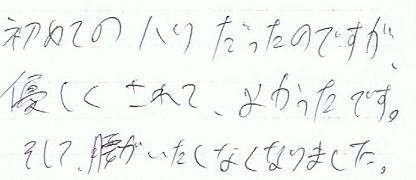 初めてのハリだったのですが、
優しくされて、よかったです。
そして、腰がいたくなくなりました。